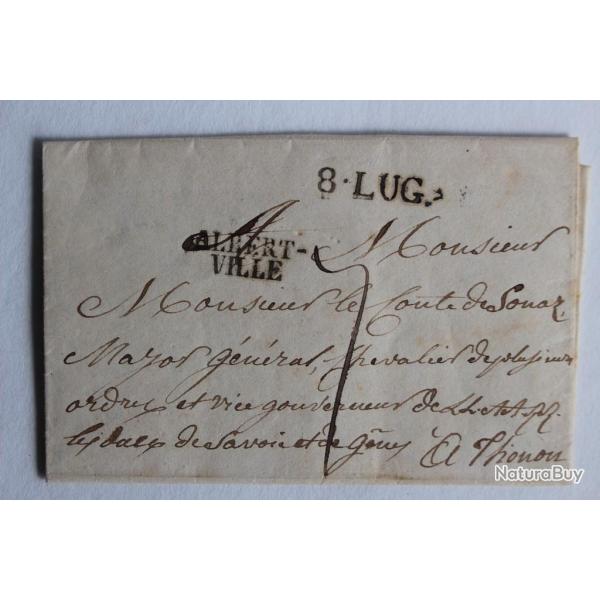 8·LUG.
ALBERT-
VILLE
Monsieur
Monsieur le Conte de Sonaz,
Major général, Chevalier de plusieurs
ordres et vice gouverneur de LL. AA. RR.
les ducs de Savoie et de Gênes
A Thonon
NaturaBuy